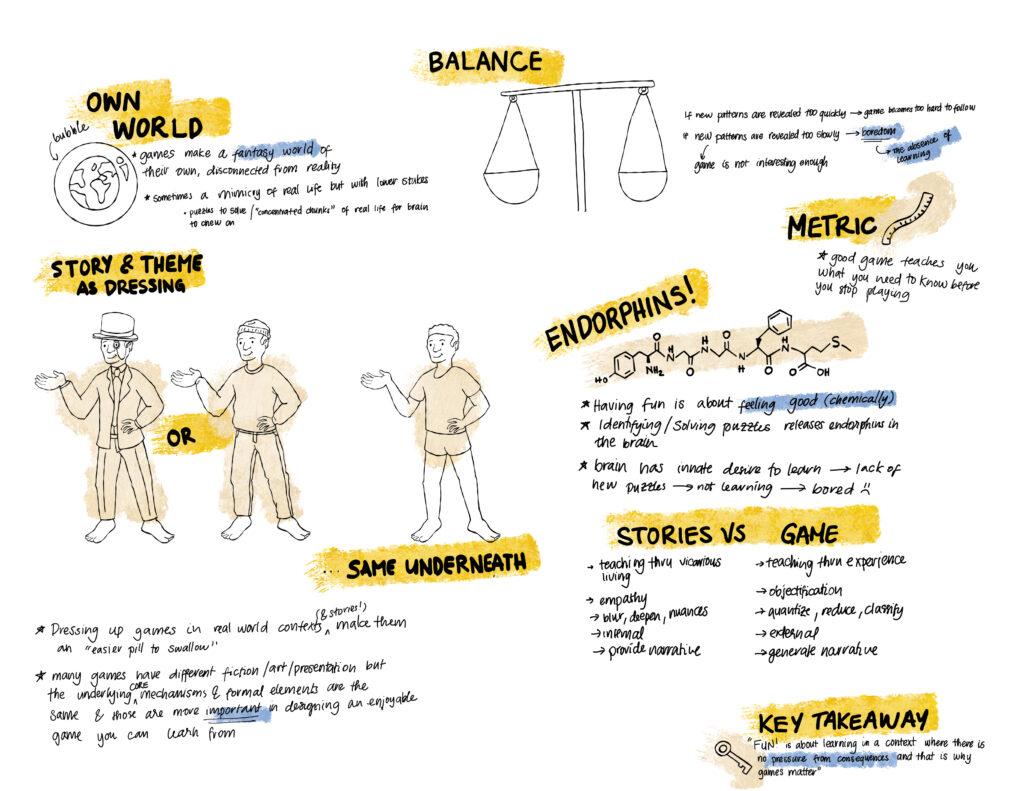 OWN
WORLD
bubble
* games make a fantasy world of
their own, disconnected from reality
* sometimes a mimicry of real life but with lower stakes
• puzzles to solve / "concentrated chunks" of real life for brain
to chew on
BALANCE
If new patterns are revealed too quickly → game becomes too hard to follow
If new patterns are revealed too slowly → boredom
→ the absence of
learning
game is not interesting enough
METRIC
* good game teaches you
what you need to know before
you stop playing
STORY & THEME
AS DRESSING
OR
... SAME UNDERNEATH
* Dressing up games in real world contexts (& stories!) make them
an "easier pill to swallow"
* many games have different fiction/art/presentation but
the underlying CORE mechanisms & formal elements are the
same & those are more important in designing an enjoyable
game you can learn from
ENDORPHINS!
HO
NH₂
O
H
N
O
H
N
O
N
H
O
H
N
O
OH
S
* Having fun is about feeling good (chemically)
* Identifying/Solving puzzles releases endorphins in
the brain
* brain has innate desire to learn → lack of
new puzzles → not learning → bored :(
STORIES VS GAME
→ teaching thru vicarious
living
→ empathy
→ blur, deepen, nuances
→ internal
→ provide narrative
→ teaching thru experience
→ objectification
→ quantize, reduce, classify
→ external
→ generate narrative
KEY TAKEAWAY
"'FUN' is about learning in a context where there is
no pressure from consequences and that is why
games matter"